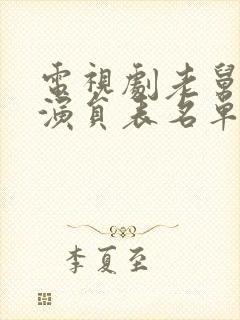 電視劇老舅
演員表名單
李夏至